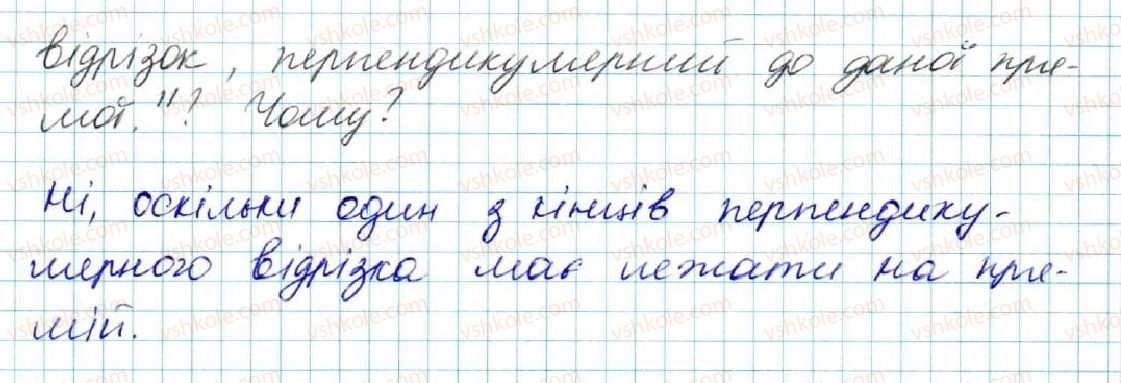 відрізок, перпендикулярний до даної пря-
мої."? Чому?
Ні, оскільки один з кінців перпендику-
лярного відрізка має лежати на пря-
мій.